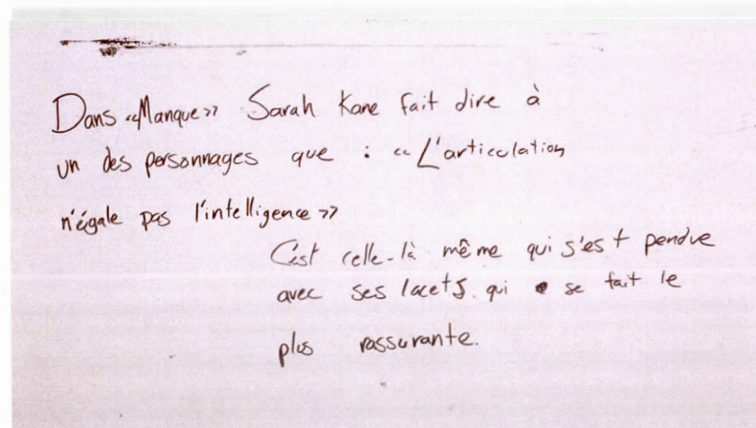 Dans «Manque» Sarah Kane fait dire à
un des personnages que : « L'articulation
n'égale pas l'intelligence »
C'est celle-là même qui s'est pendue
avec ses lacets qui se fait le
plus rassurante.